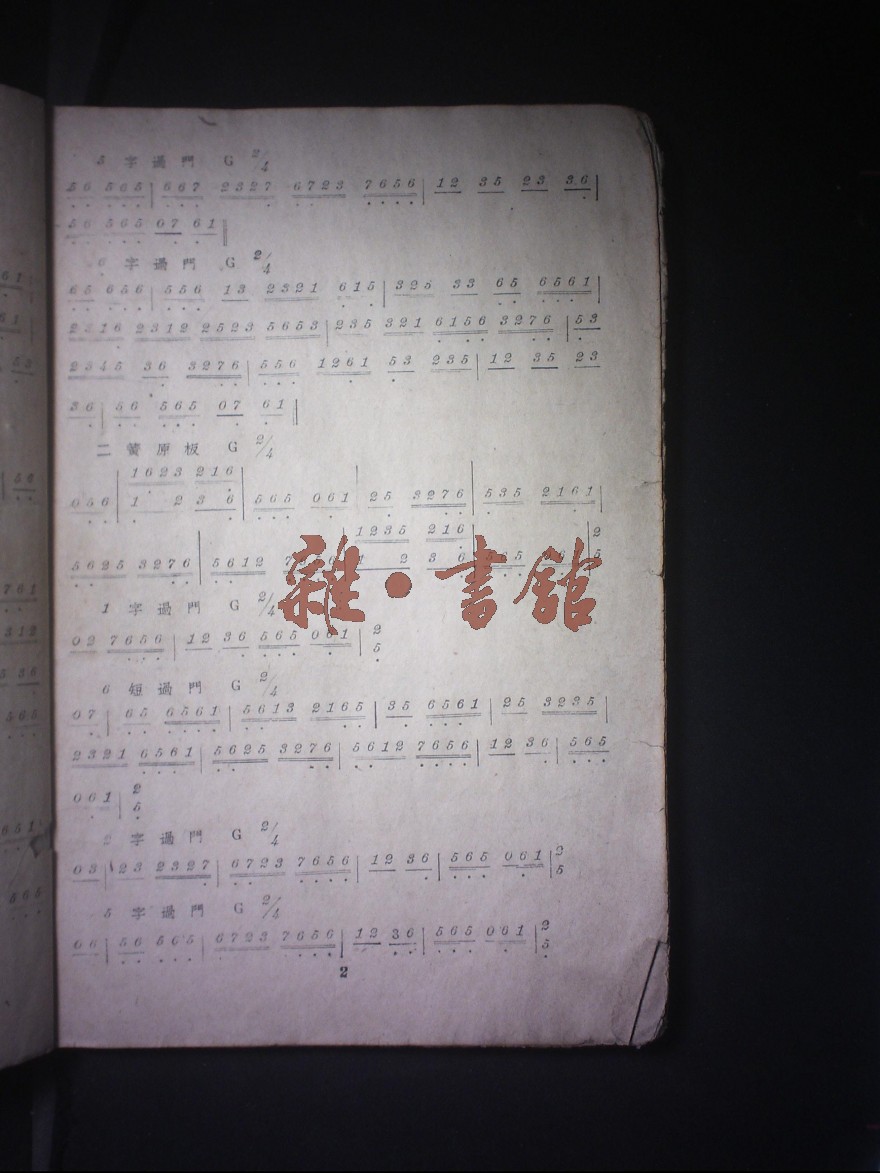 5 字過門 G 2/4
56 565 | 667 2327 6723 7656 | 12 35 23 36 |
56 565 07 61 ‖
6 字過門 G 2/4
65 656 | 556 13 2321 615 | 325 33 65 6561 |
2316 2312 2523 5653 | 235 321 6156 3276 | 53
2345 36 3276 | 556 1261 53 235 | 12 35 23
36 | 56 565 07 61 ‖
二簧原板 G 2/4
1623 216
056 | 1 2 3 6 | 565 061 | 25 3276 | 535 2161 |
1235 216 2
5625 3276 | 5612 2 3 6 5
雜·書館
1 字過門 G 2/4
02 7656 | 12 36 565 061 | 2
5
6 短過門 G 2/4
07 | 65 6561 | 5613 2165 | 35 6561 | 25 3235 |
2321 6561 | 5625 3276 | 5612 7656 | 12 36 | 565
061 | 2
5
2 字過門 G 2/4
03 | 23 2327 | 6723 7656 | 12 36 | 565 061 | 2
5
5 字過門 G 2/4
06 | 56 565 | 6723 7656 | 12 36 | 565 061 | 2
5
2